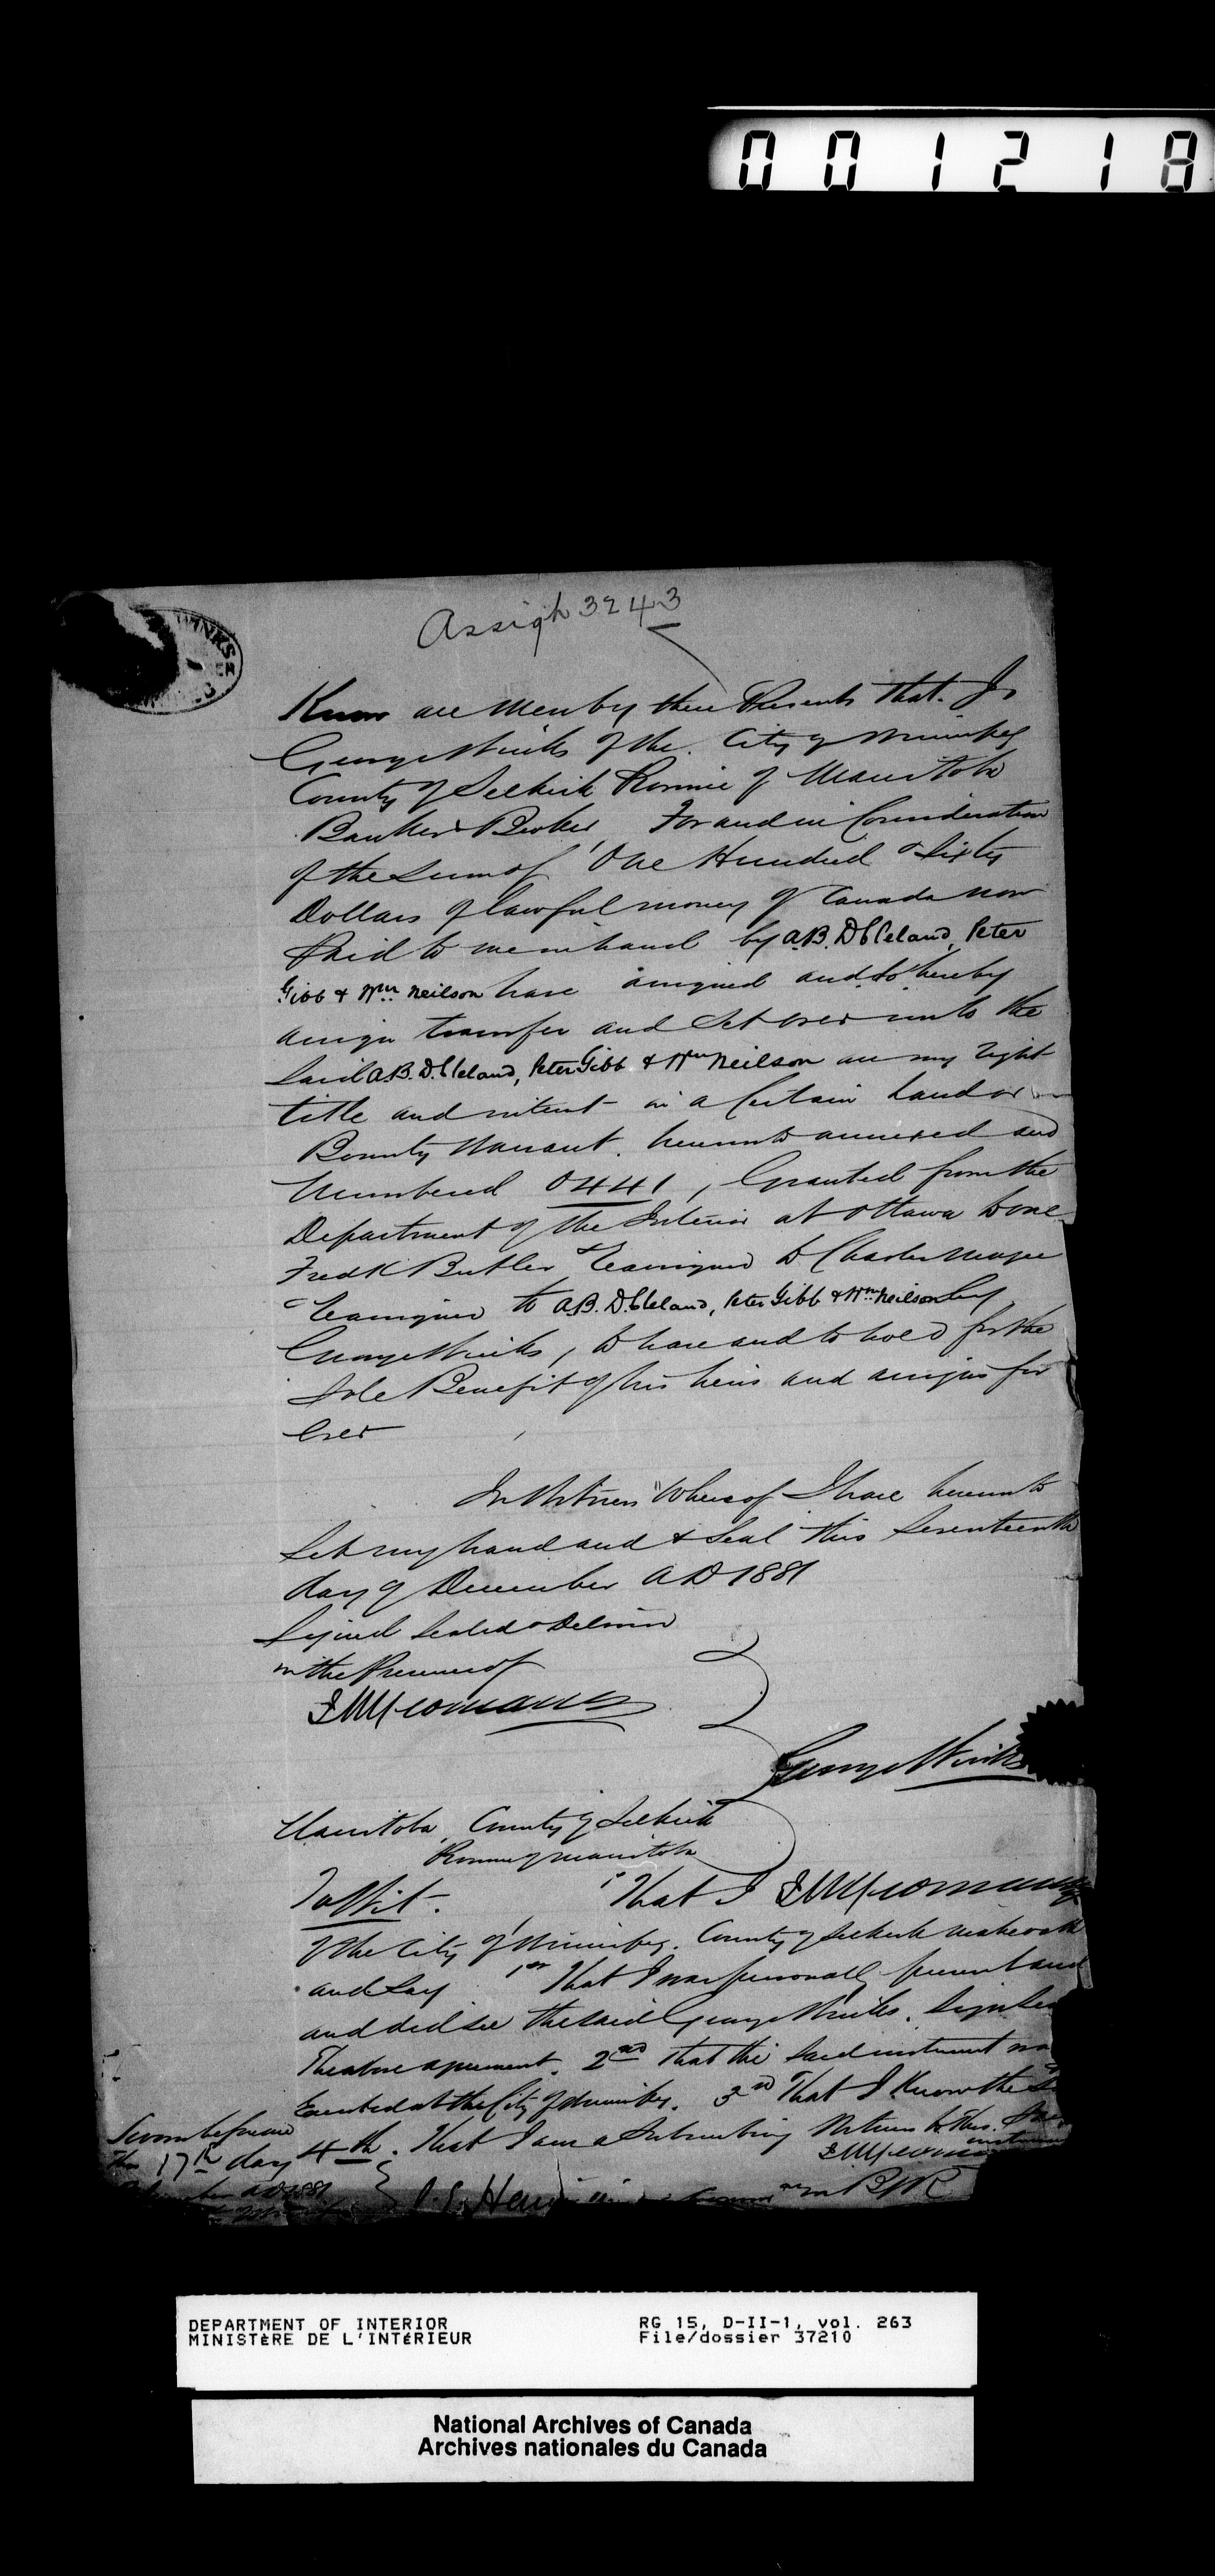 001218
Assign 3243
Know all Men by these Presents that I
George Wicks of the City of Winnipeg
County of Selkirk Province of Manitoba
Banker & Broker, For and in Consideration
of the Sum of One Hundred & Sixty
Dollars of lawful money of Canada now
Paid to me in hand by A.B. D. Cleland, Peter
Gibb & Wm. Neilson have assigned and do hereby
assign transfer and set over unto the
Said A.B. D. Cleland, Peter Gibb & Wm Neilson all my right
title and interest in a Certain Land or
Bounty Warrant hereunto annexed and
Numbered 0441, Granted from the
Department of the Interior at Ottawa to one
Fredk Butler & assigned to Charles
to A.B. D. Cleland, Peter Gibb & Wm. Neilson by
George Wicks, to have and to hold for the
Sole Benefit of his heirs and assigns for
Ever
In Witness Whereof I have hereunto
Set my hand and & Seal this Seventeenth
day of December A D 1881
Signed Sealed & Deliver
in the Presence of
George Wicks
Manitoba County of Selkirk
Province of Manitoba
To Wit. That I
of the City of Winnipeg. County of Selkirk make oath
and Say 1st That I was personally present and
and did see the said George Wicks. Sign
The above agreement. 2nd That the Said instrument was
Executed at the City of Winnipeg. 3rd That I Know the
4th. That I am a Subscribing Witness to this
Sworn before me
This 17th day
A D 1881
in B.R.
DEPARTMENT OF INTERIOR
MINISTÈRE DE L'INTÉRIEUR
RG 15, D-II-1, vol. 263
File/dossier 37210
National Archives of Canada
Archives nationales du Canada